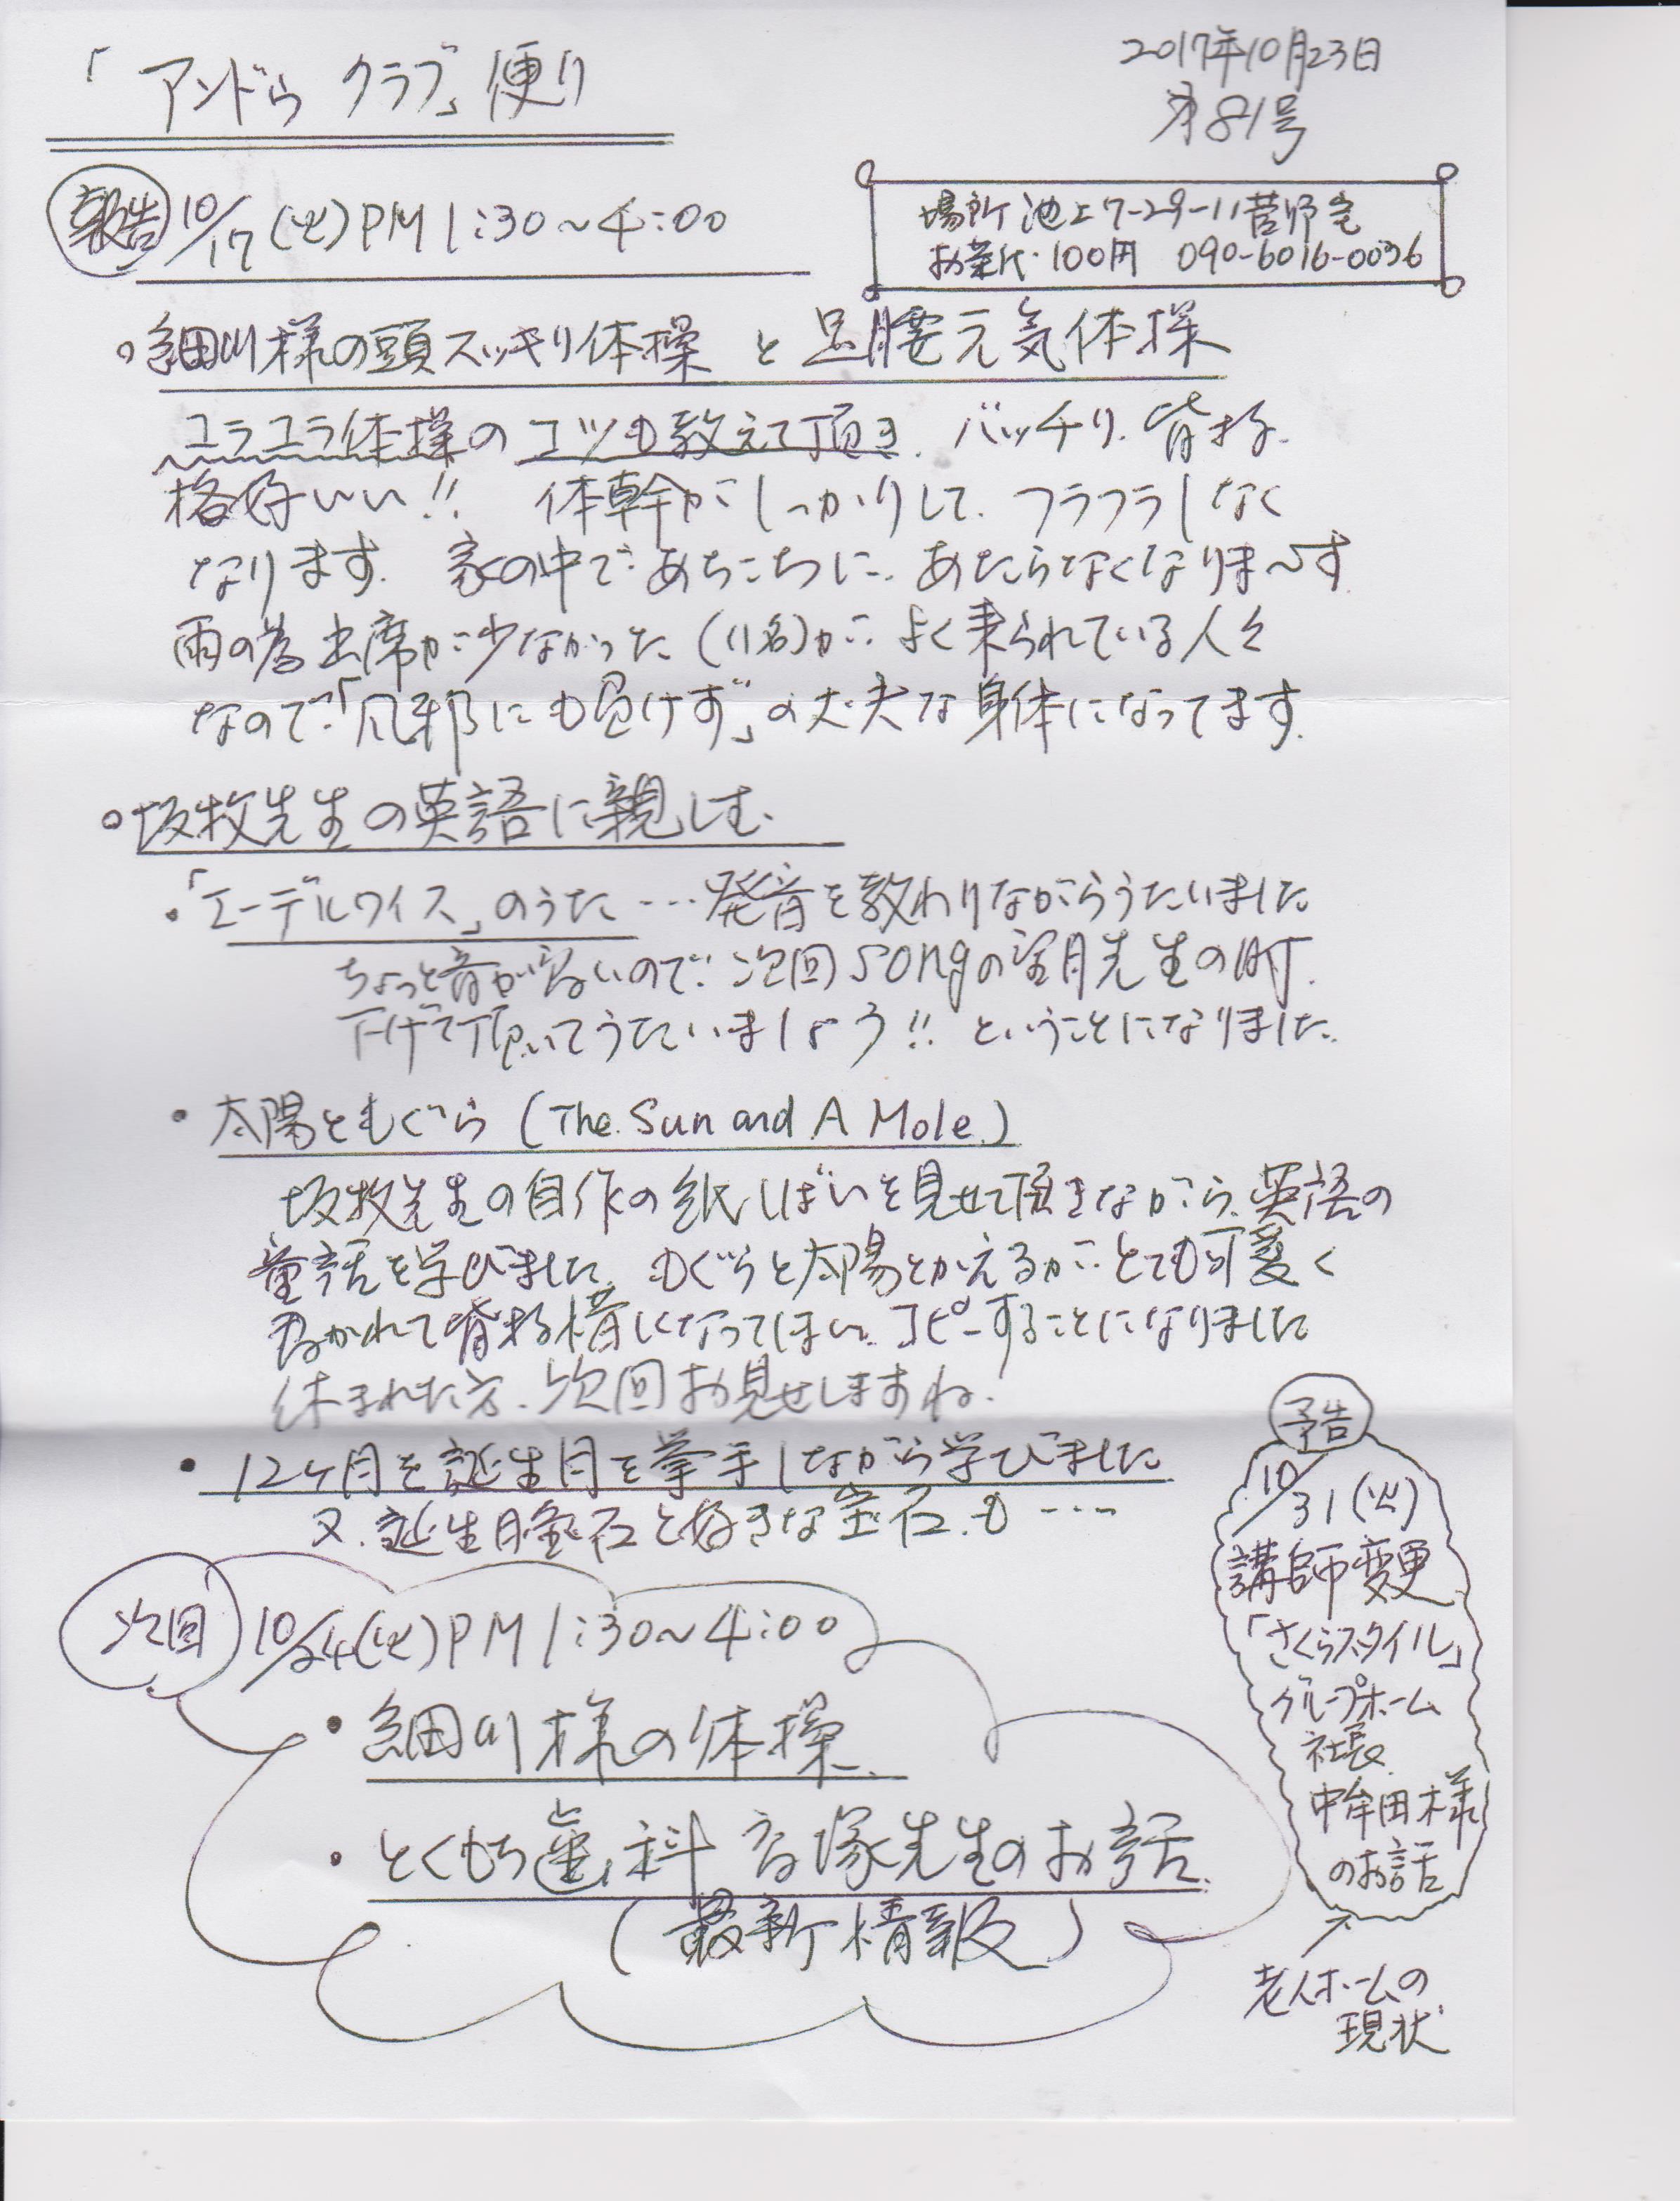 「アンドら クラブ」便り
2017年10月23日
第81号
報告 10/17(火)PM1:30~4:00
場所 池上7-29-11菅野宅
お茶代・100円 090-6016-0036
・細川様の頭スッキリ体操 と 足腰元気体操
ユラユラ体操のコツも教えて頂き、バッチリ、皆様、
格好いい!! 体幹がしっかりして、フラフラしなく
なります。家の中であちこちに、あたらなくなりま~す
雨の為出席が少なかった(11名)が、よく来られている人々
なので「風邪にも負けず」の丈夫な身体になってます。
・坂牧先生の英語に親しむ、
・「エーデルワイス」のうた…発音を教わりながらうたいました
ちょっと音が高いので、次回songの望月先生の時、
下げて頂いてうたいましょう!! ということになりました。
・太陽ともぐら(The Sun and A Mole.)
坂牧先生の自作の紙しばいを見せて頂きながら、英語の
童話を学びました。もぐらと太陽とかえるが、とても可愛く
書かれて皆様欲しくなってしまい、コピーすることになりました
休まれた方、次回お見せしますね。
・12ヶ月を誕生月を挙手しながら学びました
又、誕生月宝石と好きな宝石、も…
次回 10/24(火)PM1:30~4:00
・細川様の体操、
・とくもち歯科 高塚先生のお話、
(最新情報)
予告
10/31(火)
講師変更
「さくらスタイル」
グループホーム
社長
中牟田様
のお話
老人ホームの
現状